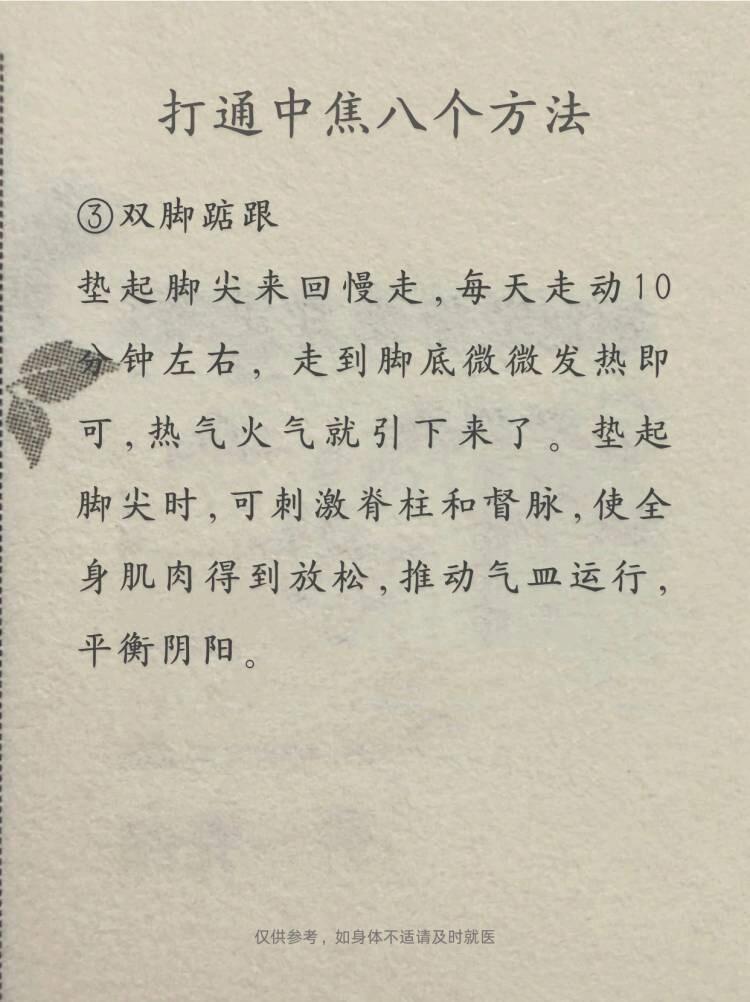 打通中焦八个方法
③双脚踮跟
垫起脚尖来回慢走,每天走动10
分钟左右，走到脚底微微发热即
可,热气火气就引下来了。垫起
脚尖时,可刺激脊柱和督脉,使全
身肌肉得到放松,推动气皿运行,
平衡阴阳。
仅供参考，如身体不适请及时就医